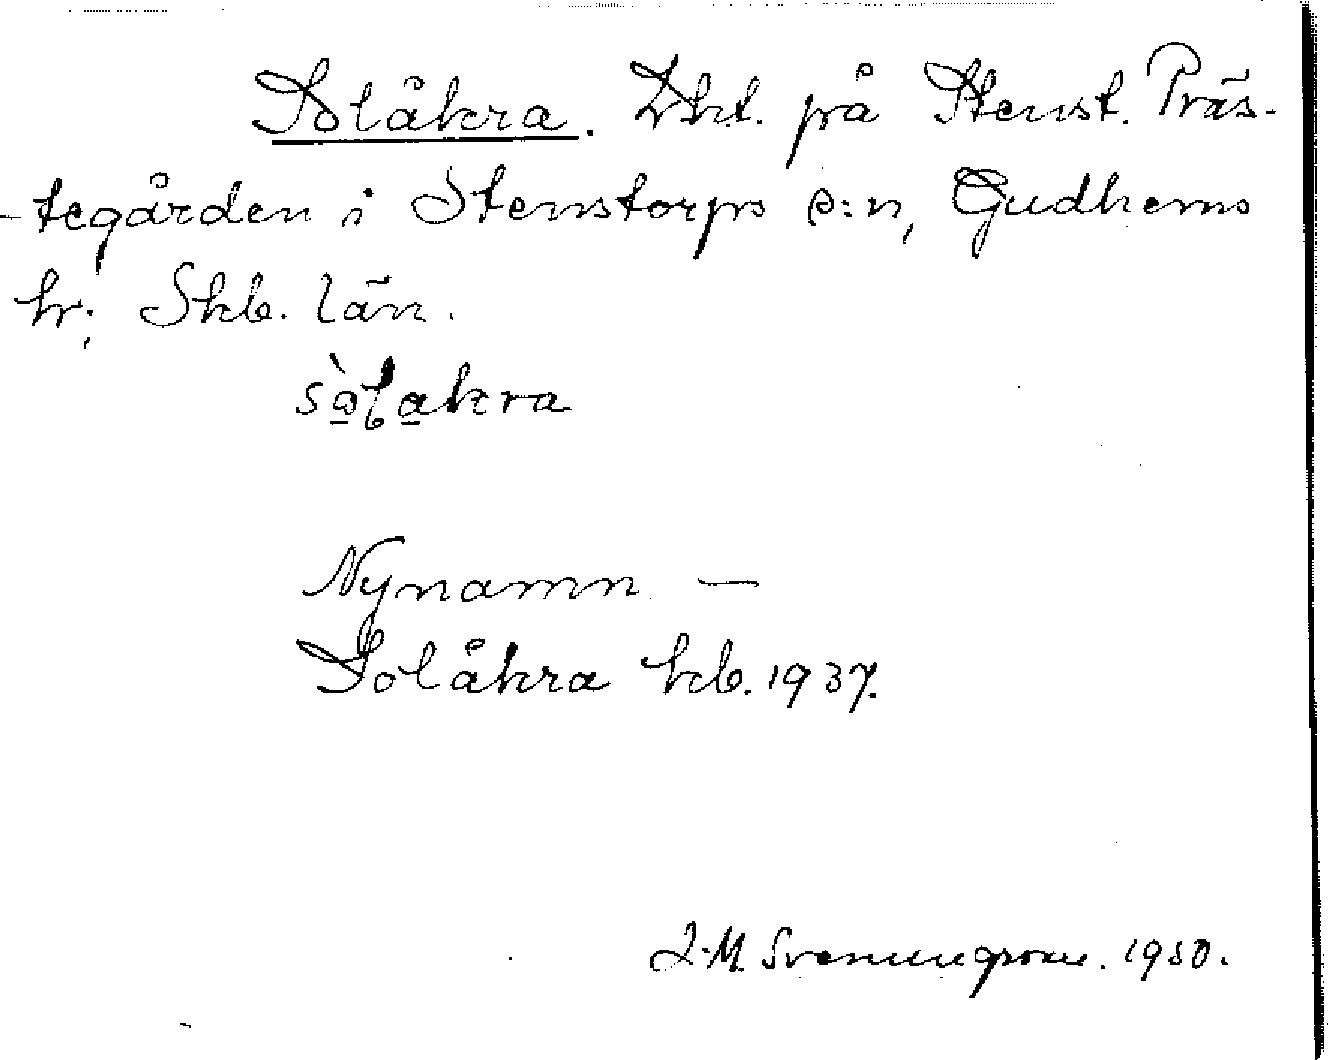 Solåkra. Lht. på Stenst. Präs-
-tegården i Stenstorps s:n, Gudhems
hr; Skb. län.
sò̲ɫa̲kra
Nynamn —
Solåkra kb. 1937.
1950.